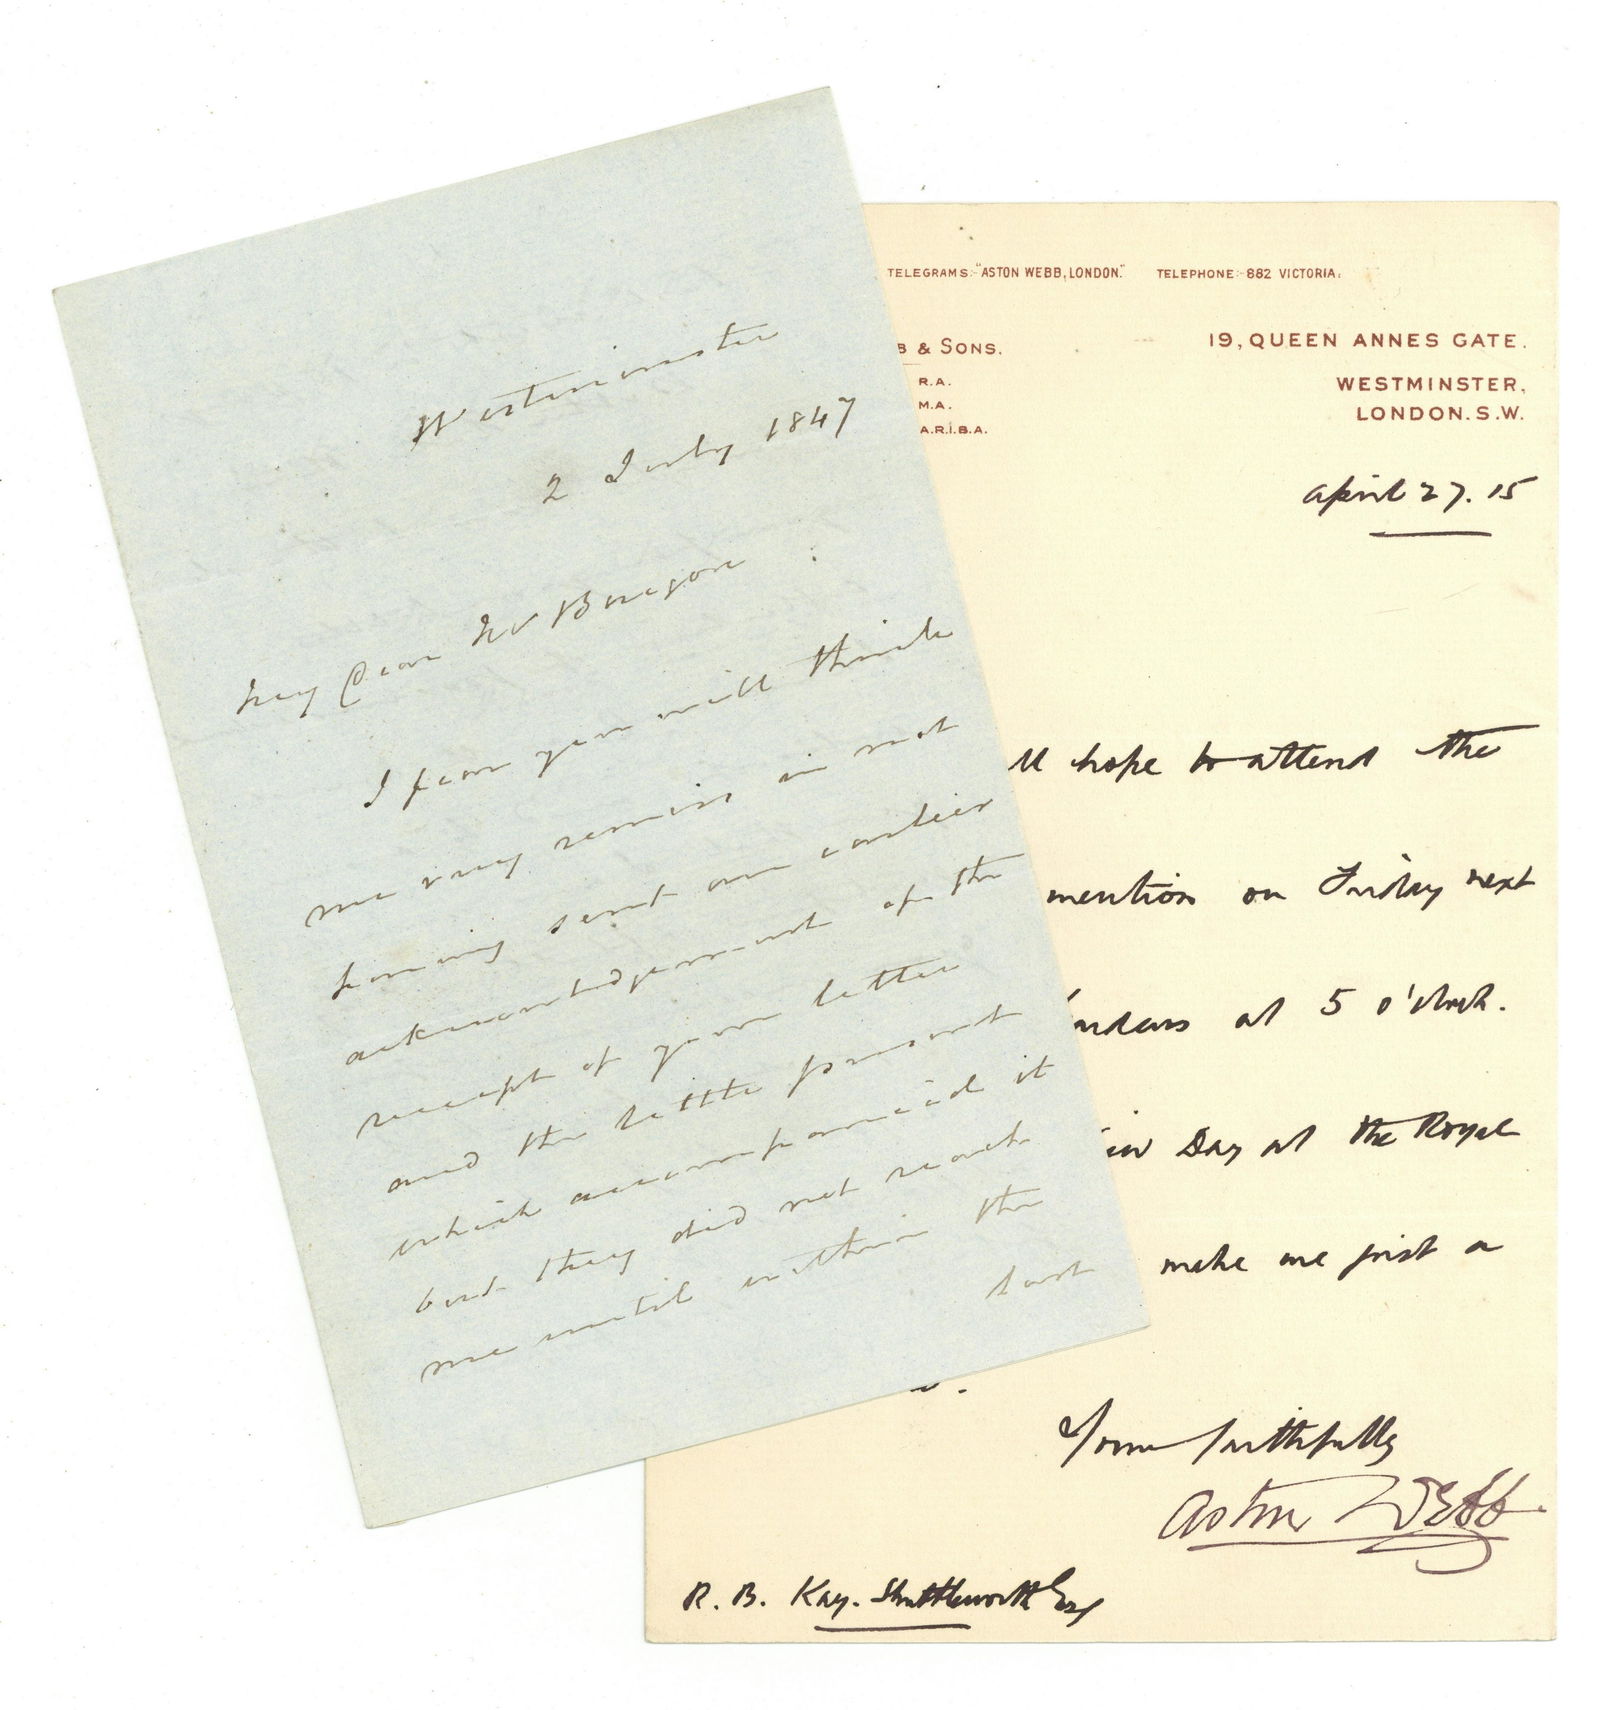 Westminster
2 July 1847
My Dear Mr
I fear you will think
me very remiss in not
having sent an earlier
acknowledgement of the
receipt of your letter
and the little present
which accompanied it
but they did not reach
me until within the
last
TELEGRAMS:-"ASTON WEBB, LONDON." TELEPHONE:-882 VICTORIA.
B & SONS.
R.A.
M.A.
A.R.I.B.A.
19, QUEEN ANNES GATE.
WESTMINSTER,
LONDON. S.W.
April 27. 15
ll hope to attend the
mention on Friday next
at 5 o'clock.
Day at the Royal
make me just a
Yours faithfully
Aston Webb.
R. B. Kay-Shuttleworth Esq